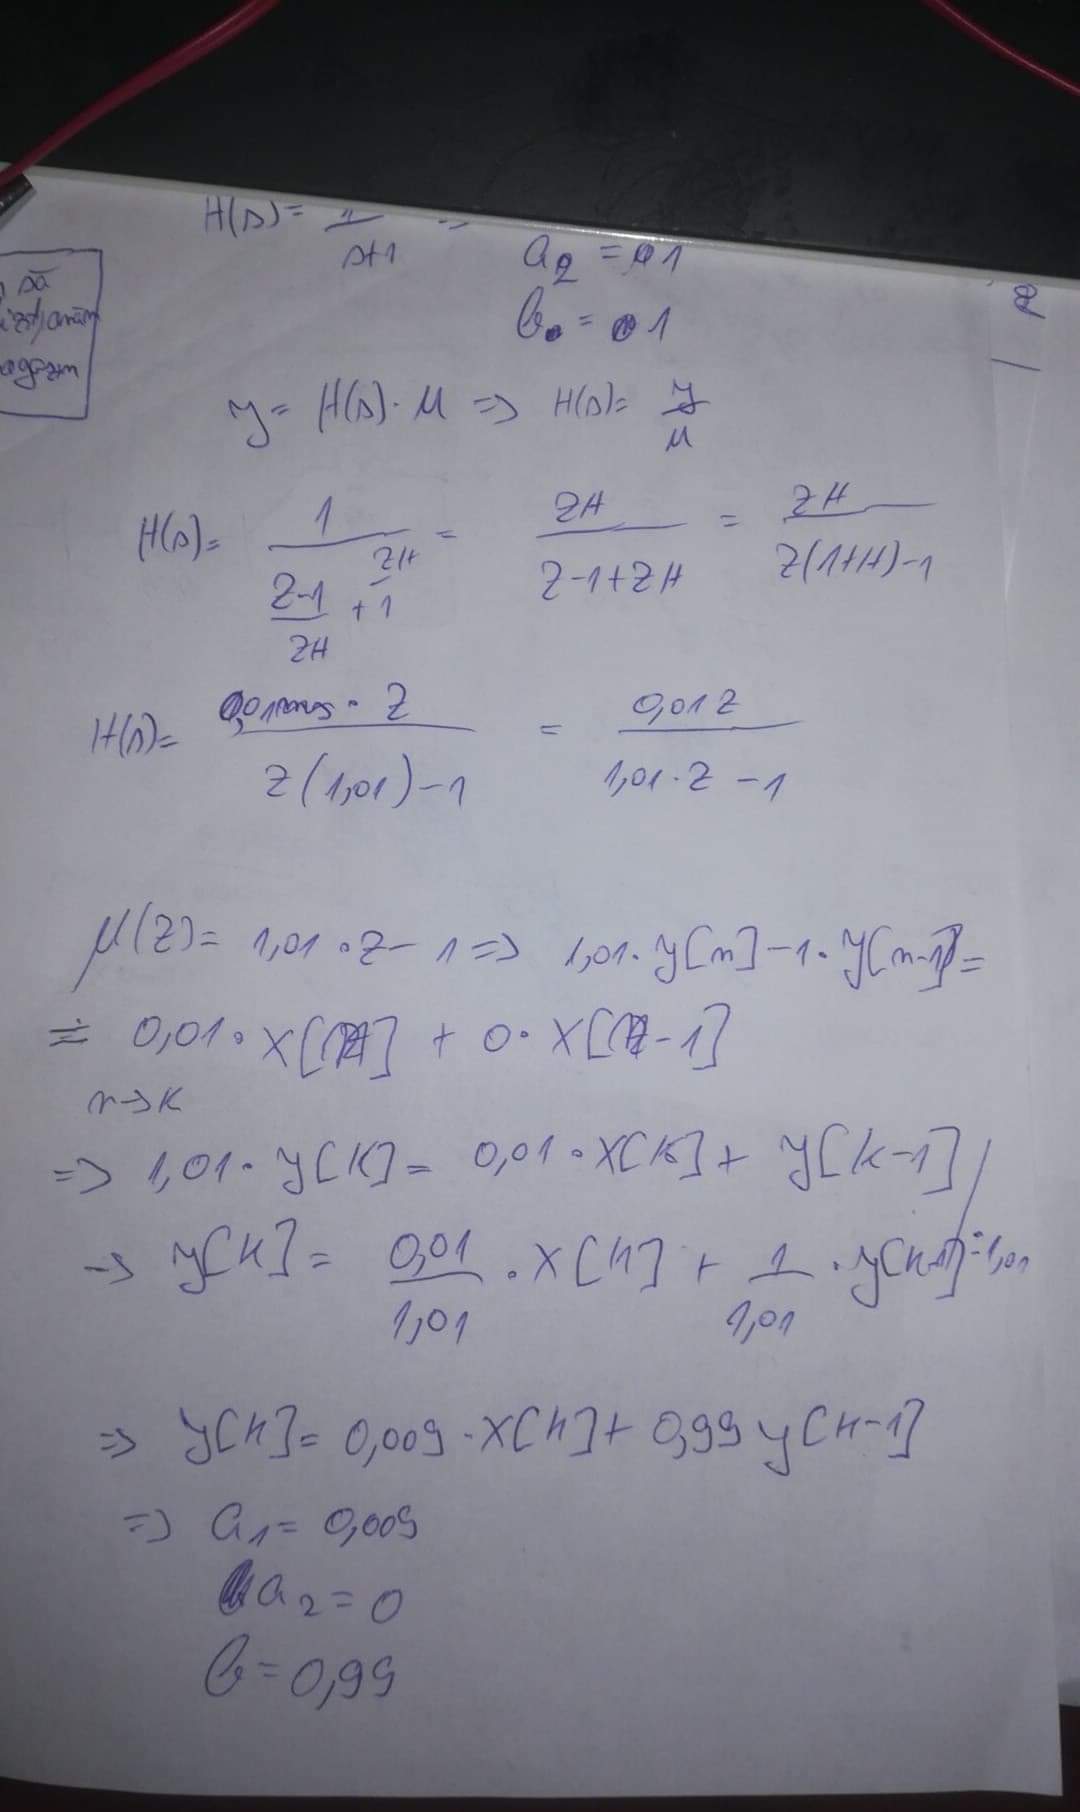 H(s)= 1/(s+1) =>
a2 = 1
să
b0 = 1
2
y = H(s)·u => H(s)= y/u
H(s)= 1/((z-1)/(zH) + 1) = zH/(z-1+zH) = zH/(z(1+H)-1)
H(s)= 0,01·z/(z(1,01)-1) = 0,01z/(1,01·z-1)
μ(z)= 1,01·z-1 => 1,01·y[n]-1·y[n-1]=
= 0,01·x[n] + 0·x[n-1]
n->k
=> 1,01·y[k]= 0,01·x[k]+ y[k-1] /:1,01
-> y[k]= 0,01/1,01·x[k] + 1/1,01·y[k-1]
=> y[k]= 0,009·x[k]+ 0,99y[k-1]
=> a1= 0,009
a2= 0
b=0,99